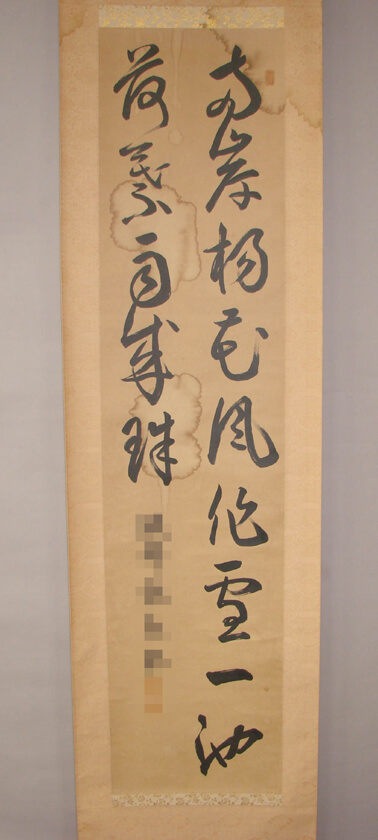 兩岸楊花風作雪一池
荷葉雨成珠